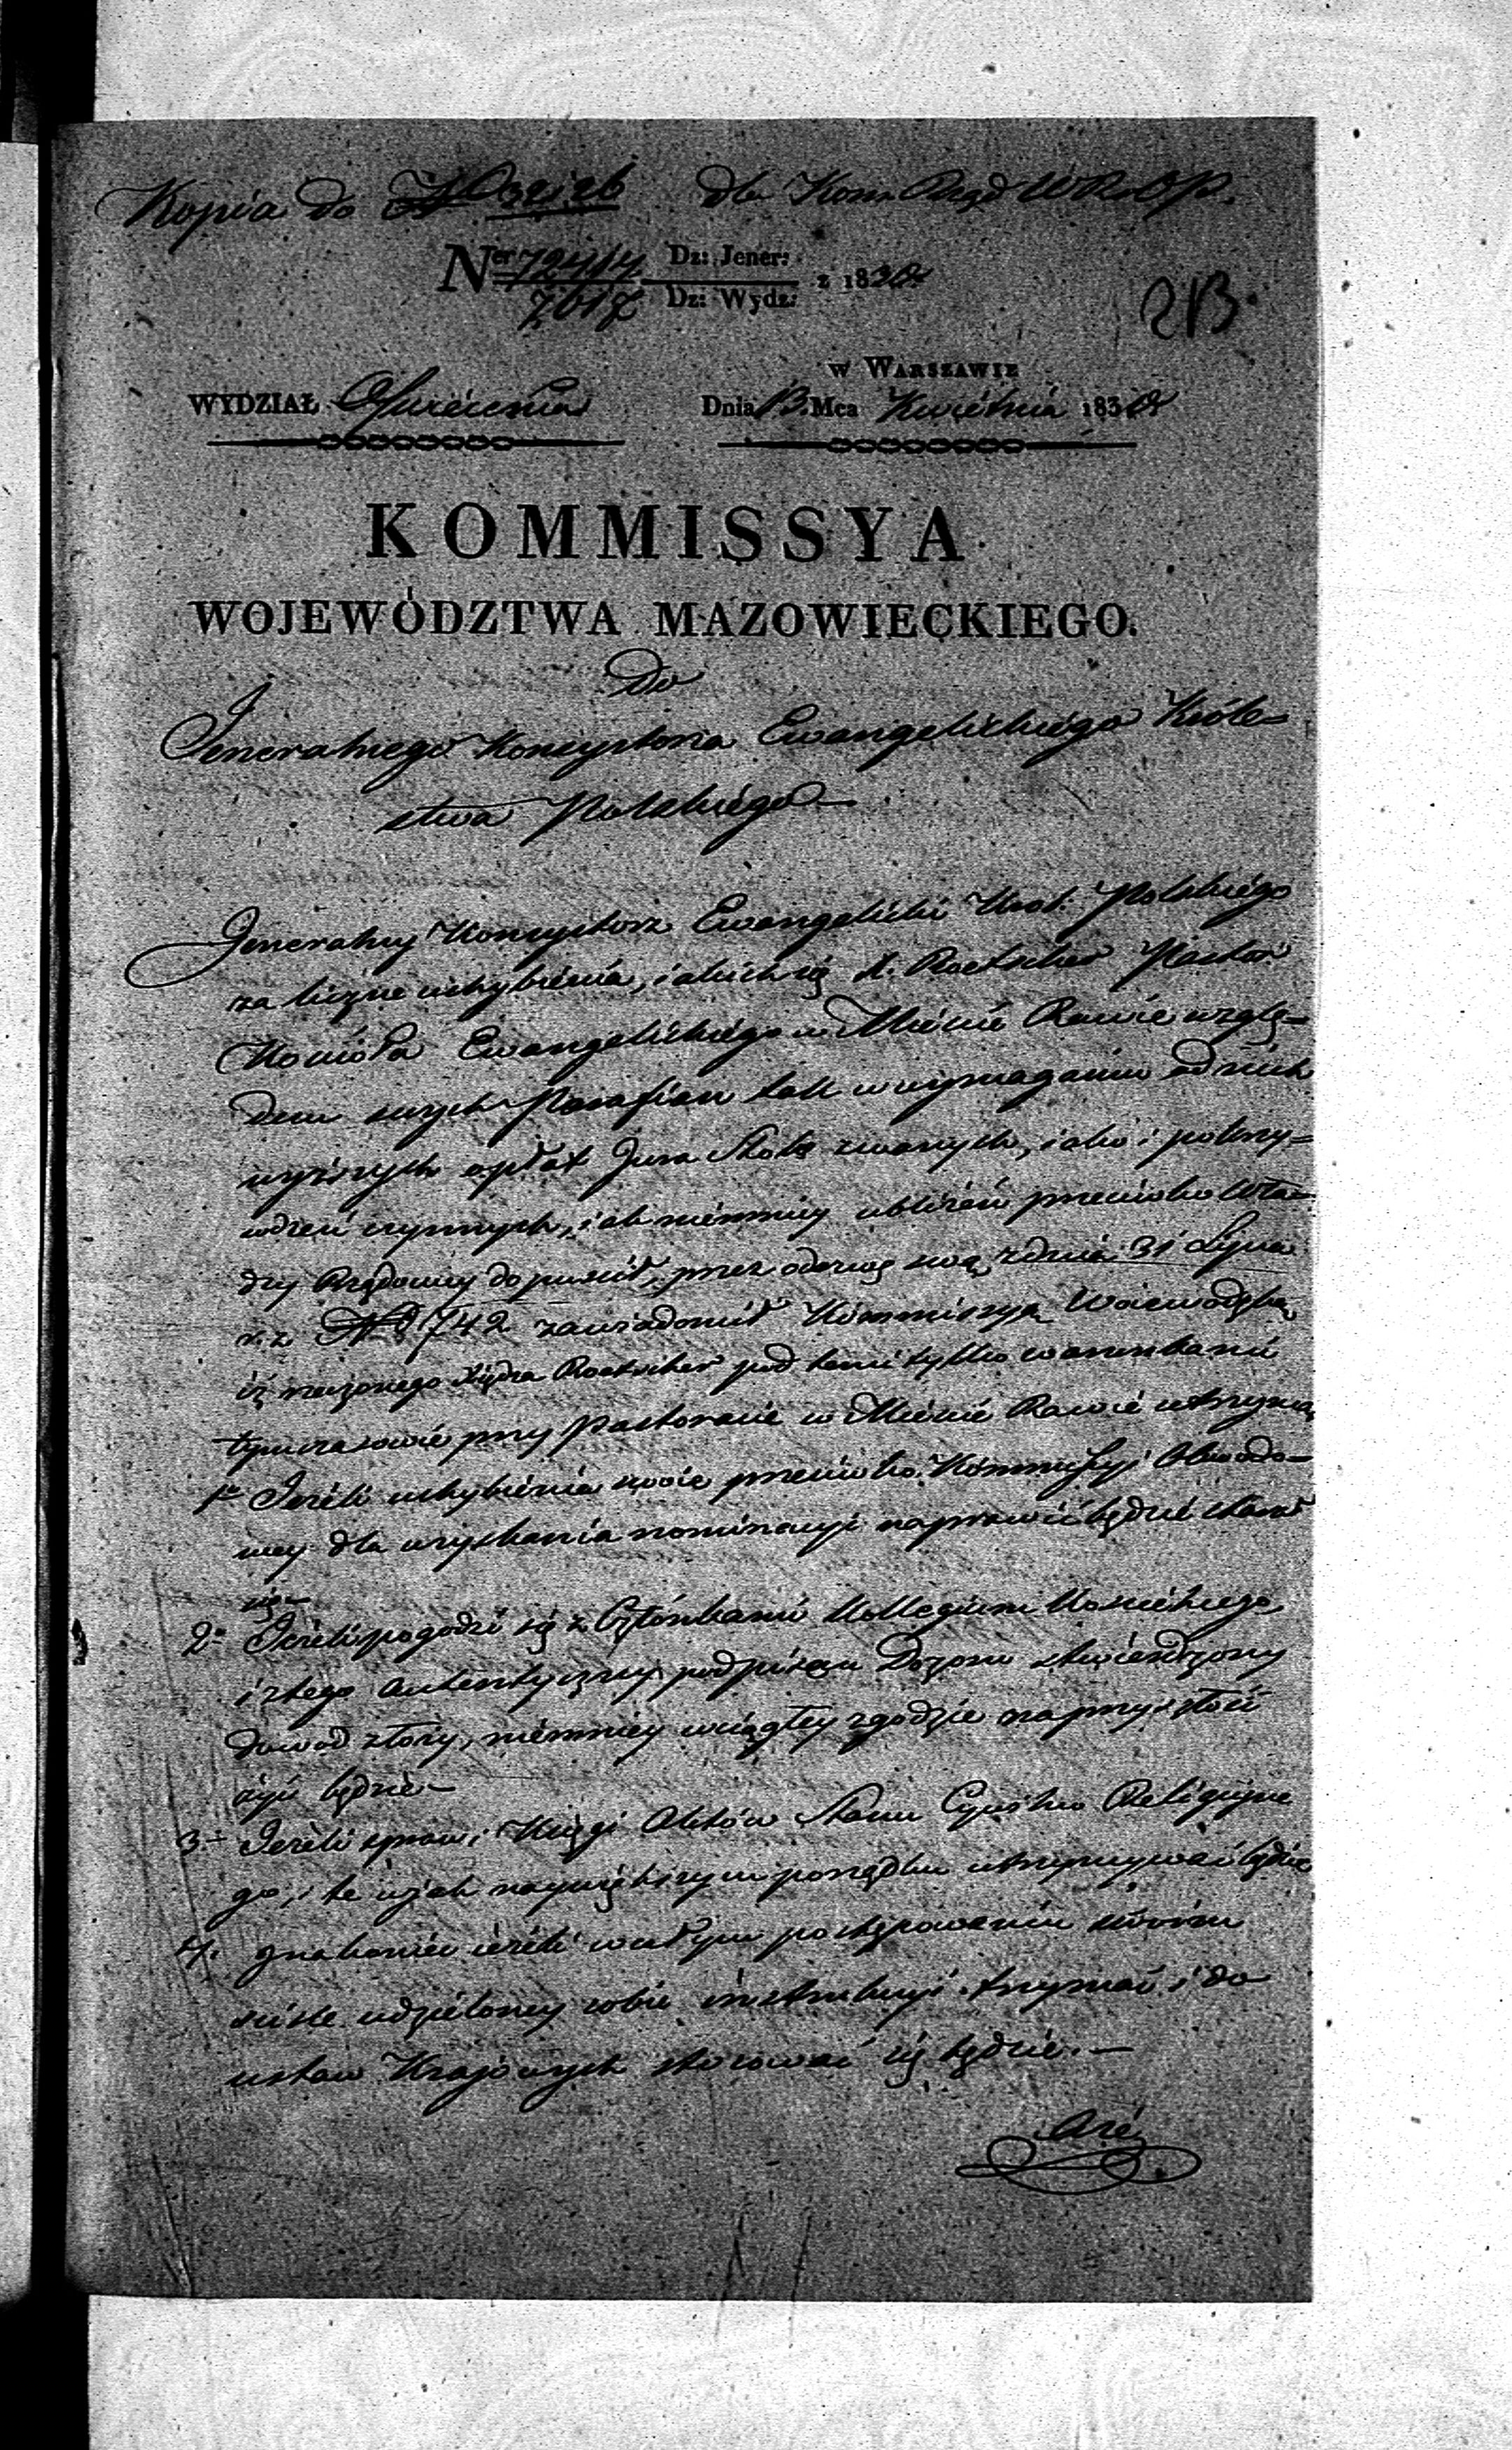 Kopia do dla Kom. Rząd W R i O P.
Ner 72414 Dz: Jener: z 1830
7617 Dz: Wydz:
213.
w Warszawie
WYDZIAŁ Oświecenia Dnia 13. Mca Kwietnia 1830
KOMMISSYA
WOJEWÓDZTWA MAZOWIECKIEGO.
Do
Jeneralnego Konsystorza Ewangelickiego Króle=
stwa Polskiego
Jeneralny Konsystorz Ewangelicki Król. Polskiego
za liczne uchybienia, iakich się X. Roetscher Pastor
Kościoła Ewangelickiego w Mieście Rawie wzglę=
dem swych Parafian tak w wymaganiu od nich
wyższych opłat Jura Stolę zwanych, iako i pokrzy=
wdzeń czynnych, iak niemniey ubliżeń przeciwko Wła=
dzy Rządowey dopuścił, przez odezwę swą z dnia 31 Lipca
r. z. No 742 zawiadomił Kommissyą Woiewódzką
iż rzeczonego Xiędza Roetscher pod temi tylko warunkami
tymczasowie przy Pastoracie w Mieście Rawie utrzyma
1o Jeżeli uchybienia swoie przeciwko Kommissyi Obwodo=
wey dla uzyskania nominacyi naprawić będzie starał
się
2o Jeżeli pogodzi się z Członkami Kollegium Kościelnego,
i z tego autentyczny podpisem Dozoru stwierdzony
dowód złoży, niemniey w ciągłey zgodzie na przyszłość
żyć będzie
3o Jeżeli sprawi Księgi Aktów Stanu Cywilno Religijne
go, i te w jak naywiększym porządku utrzymywać będzie
4. znakoniec ieżeli w całym postępowaniu swoim
ściśle udzieloney sobie instrukcyi trzymać i do
ustaw Krajowych stosować się będzie.